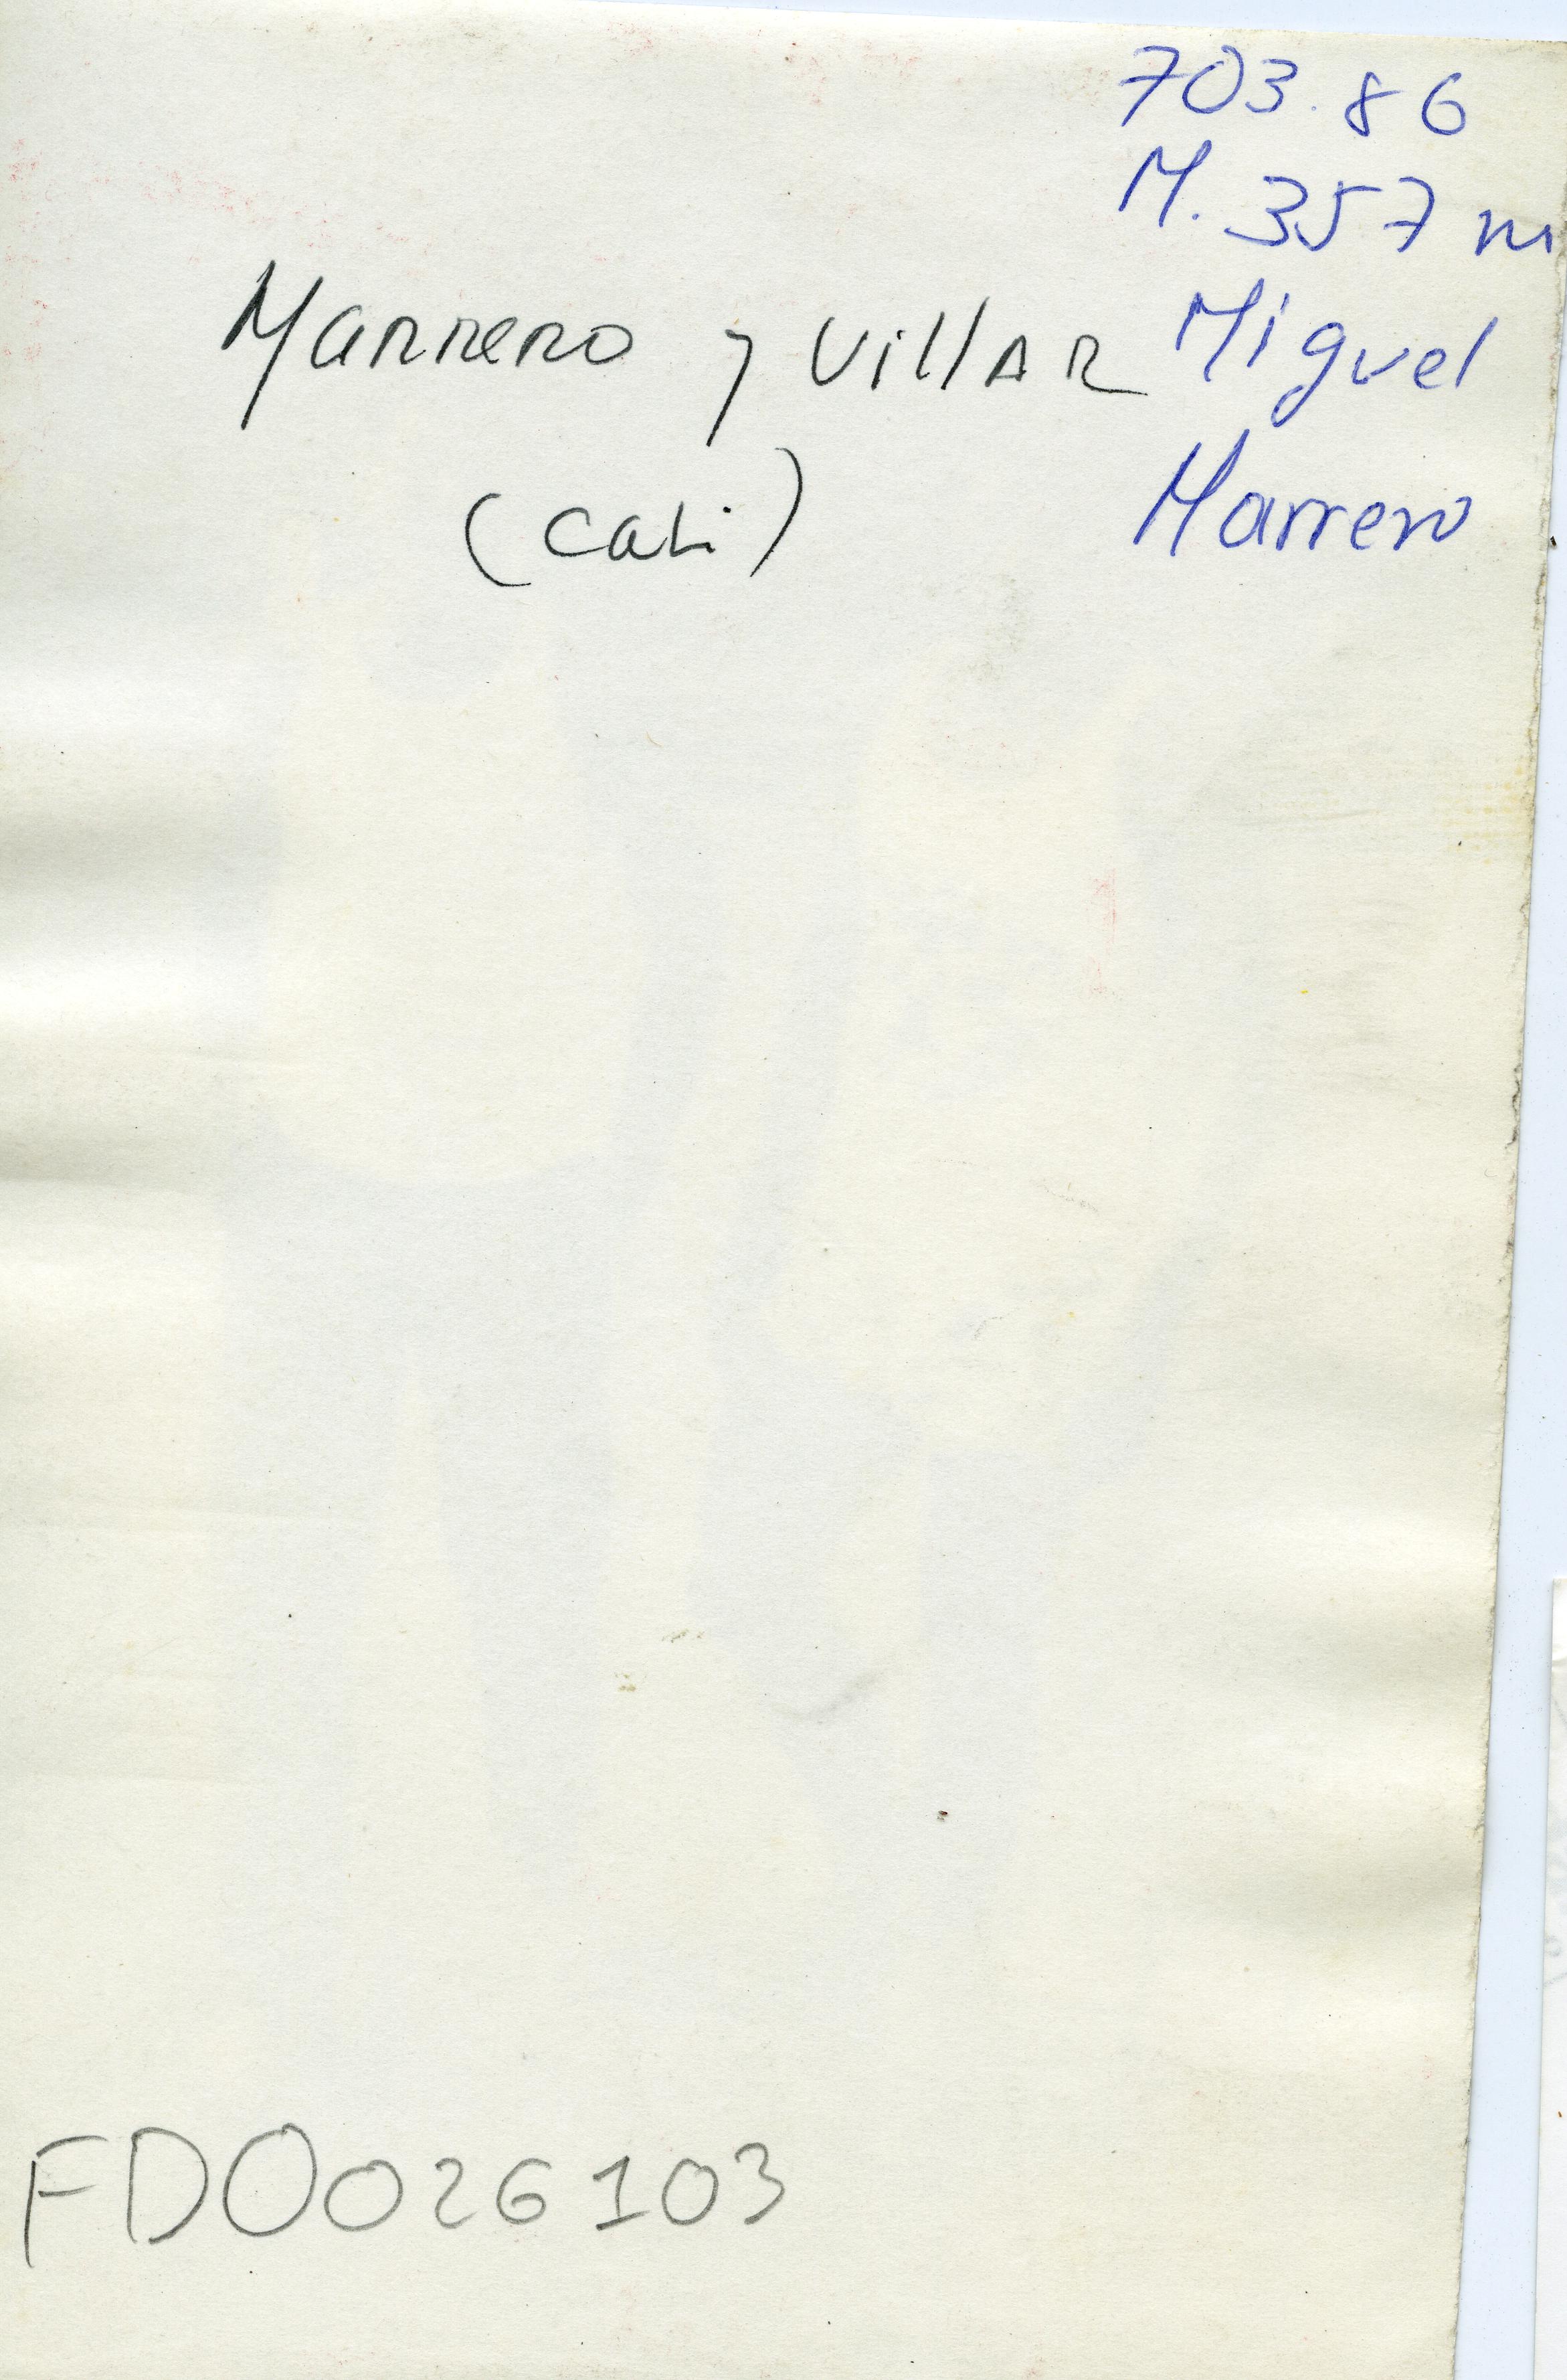 703.86
M.357m
Marrero y Villar
(Cali)
Miguel
Marrero
FDO026103